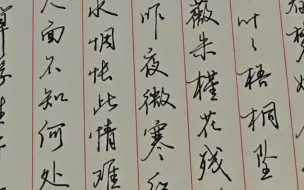 叶々梧桐坠
薇朱槿花残
昨夜微寒
水惆怅此情难
人面不知何处